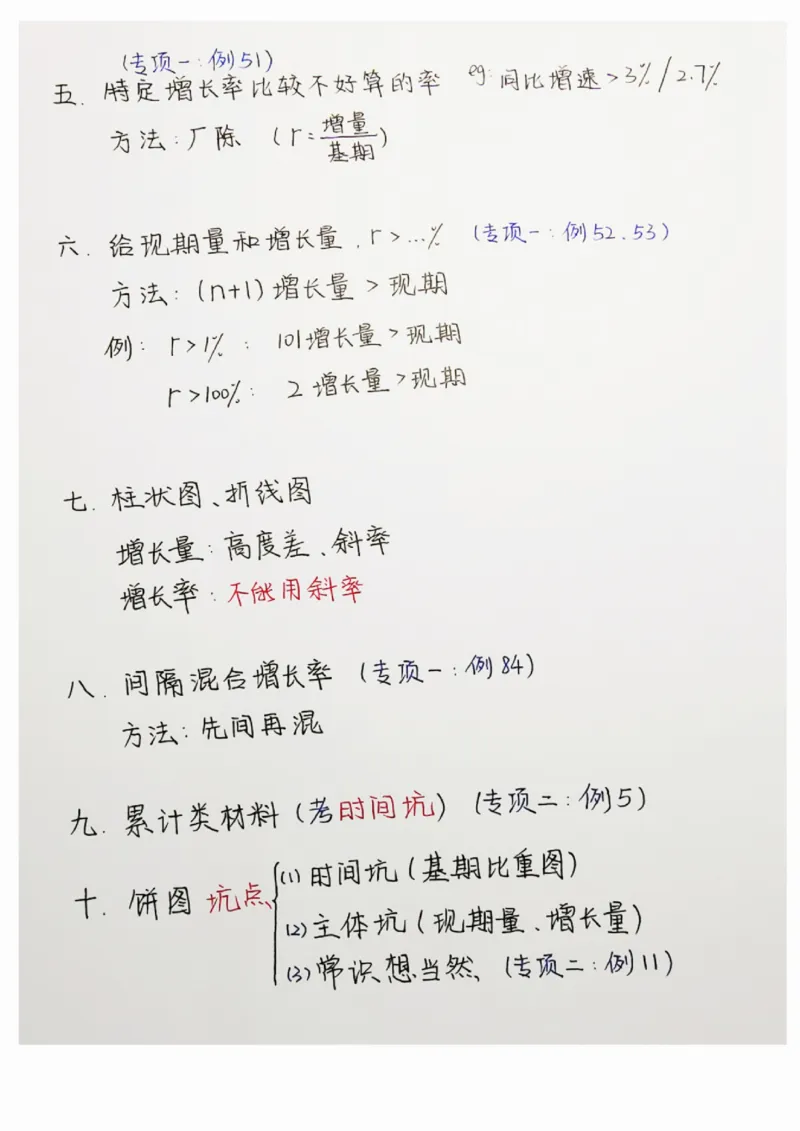 (专项一:例51)
五. 特定增长率比较不好算的率 eg: 同比增速>3%/2.7%
方法:厂除 (r=增量/基期)
六. 给现期量和增长量,r>...% (专项一:例52、53)
方法:(n+1)增长量>现期
例: r>1%: 101增长量>现期
r>100%: 2增长量>现期
七. 柱状图、折线图
增长量:高度差、斜率
增长率:不能用斜率
八. 间隔混合增长率 (专项一:例84)
方法:先间再混
九. 累计类材料(考时间坑) (专项二:例5)
十. 饼图 坑点
(1)时间坑(基期比重图)
(2)主体坑(现期量、增长量)
(3)常识想当然、(专项二:例11)